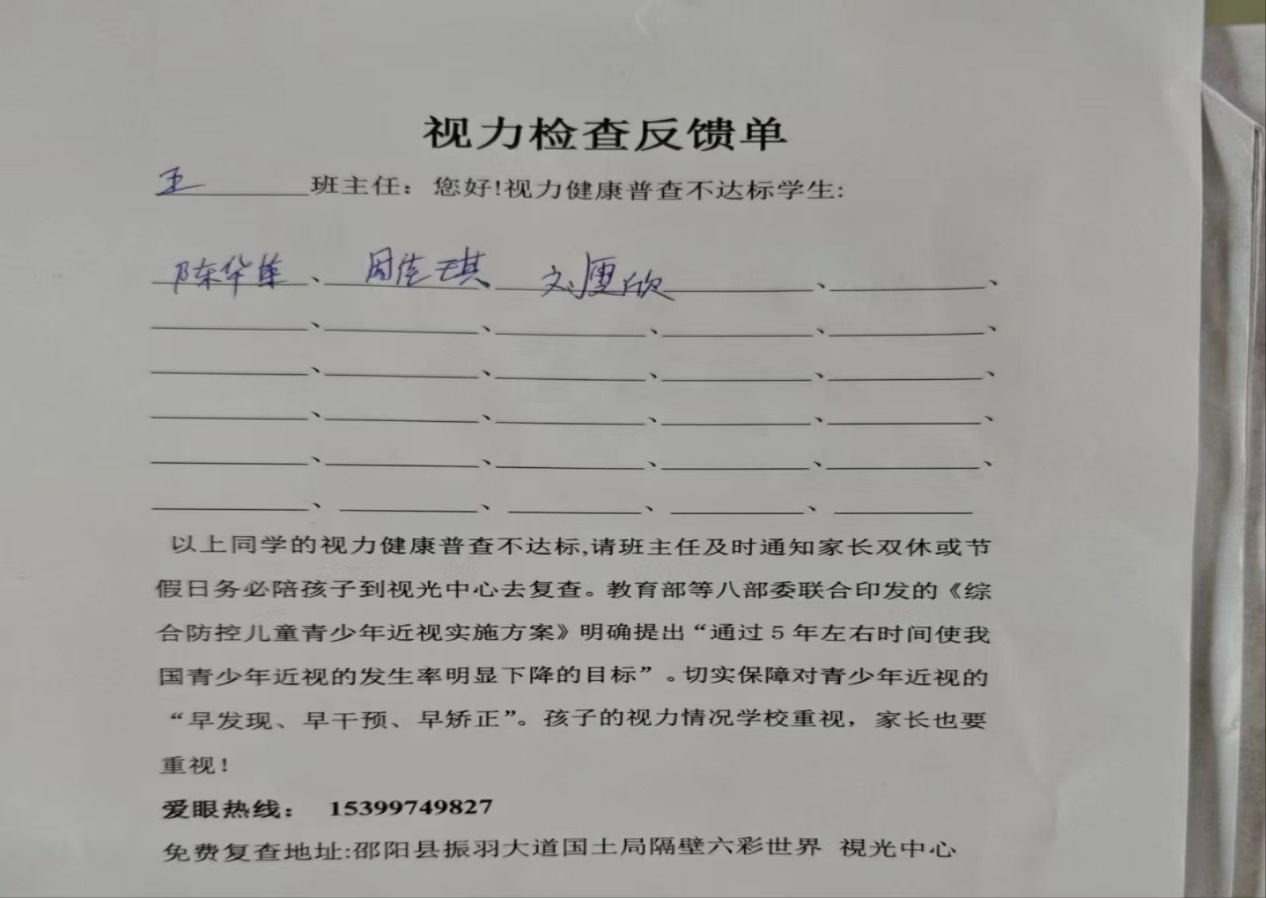 视力检查反馈单
王 班主任：您好!视力健康普查不达标学生:
陈华雄、周佳琪、刘雯欣、、
以上同学的视力健康普查不达标,请班主任及时通知家长双休或节
假日务必陪孩子到视光中心去复查。教育部等八部委联合印发的《综
合防控儿童青少年近视实施方案》明确提出“通过5年左右时间使我
国青少年近视的发生率明显下降的目标”。切实保障对青少年近视的
“早发现、早干预、早矫正”。孩子的视力情况学校重视，家长也要
重视!
爱眼热线： 15399749827
免费复查地址:邵阳县振羽大道国土局隔壁六彩世界 視光中心